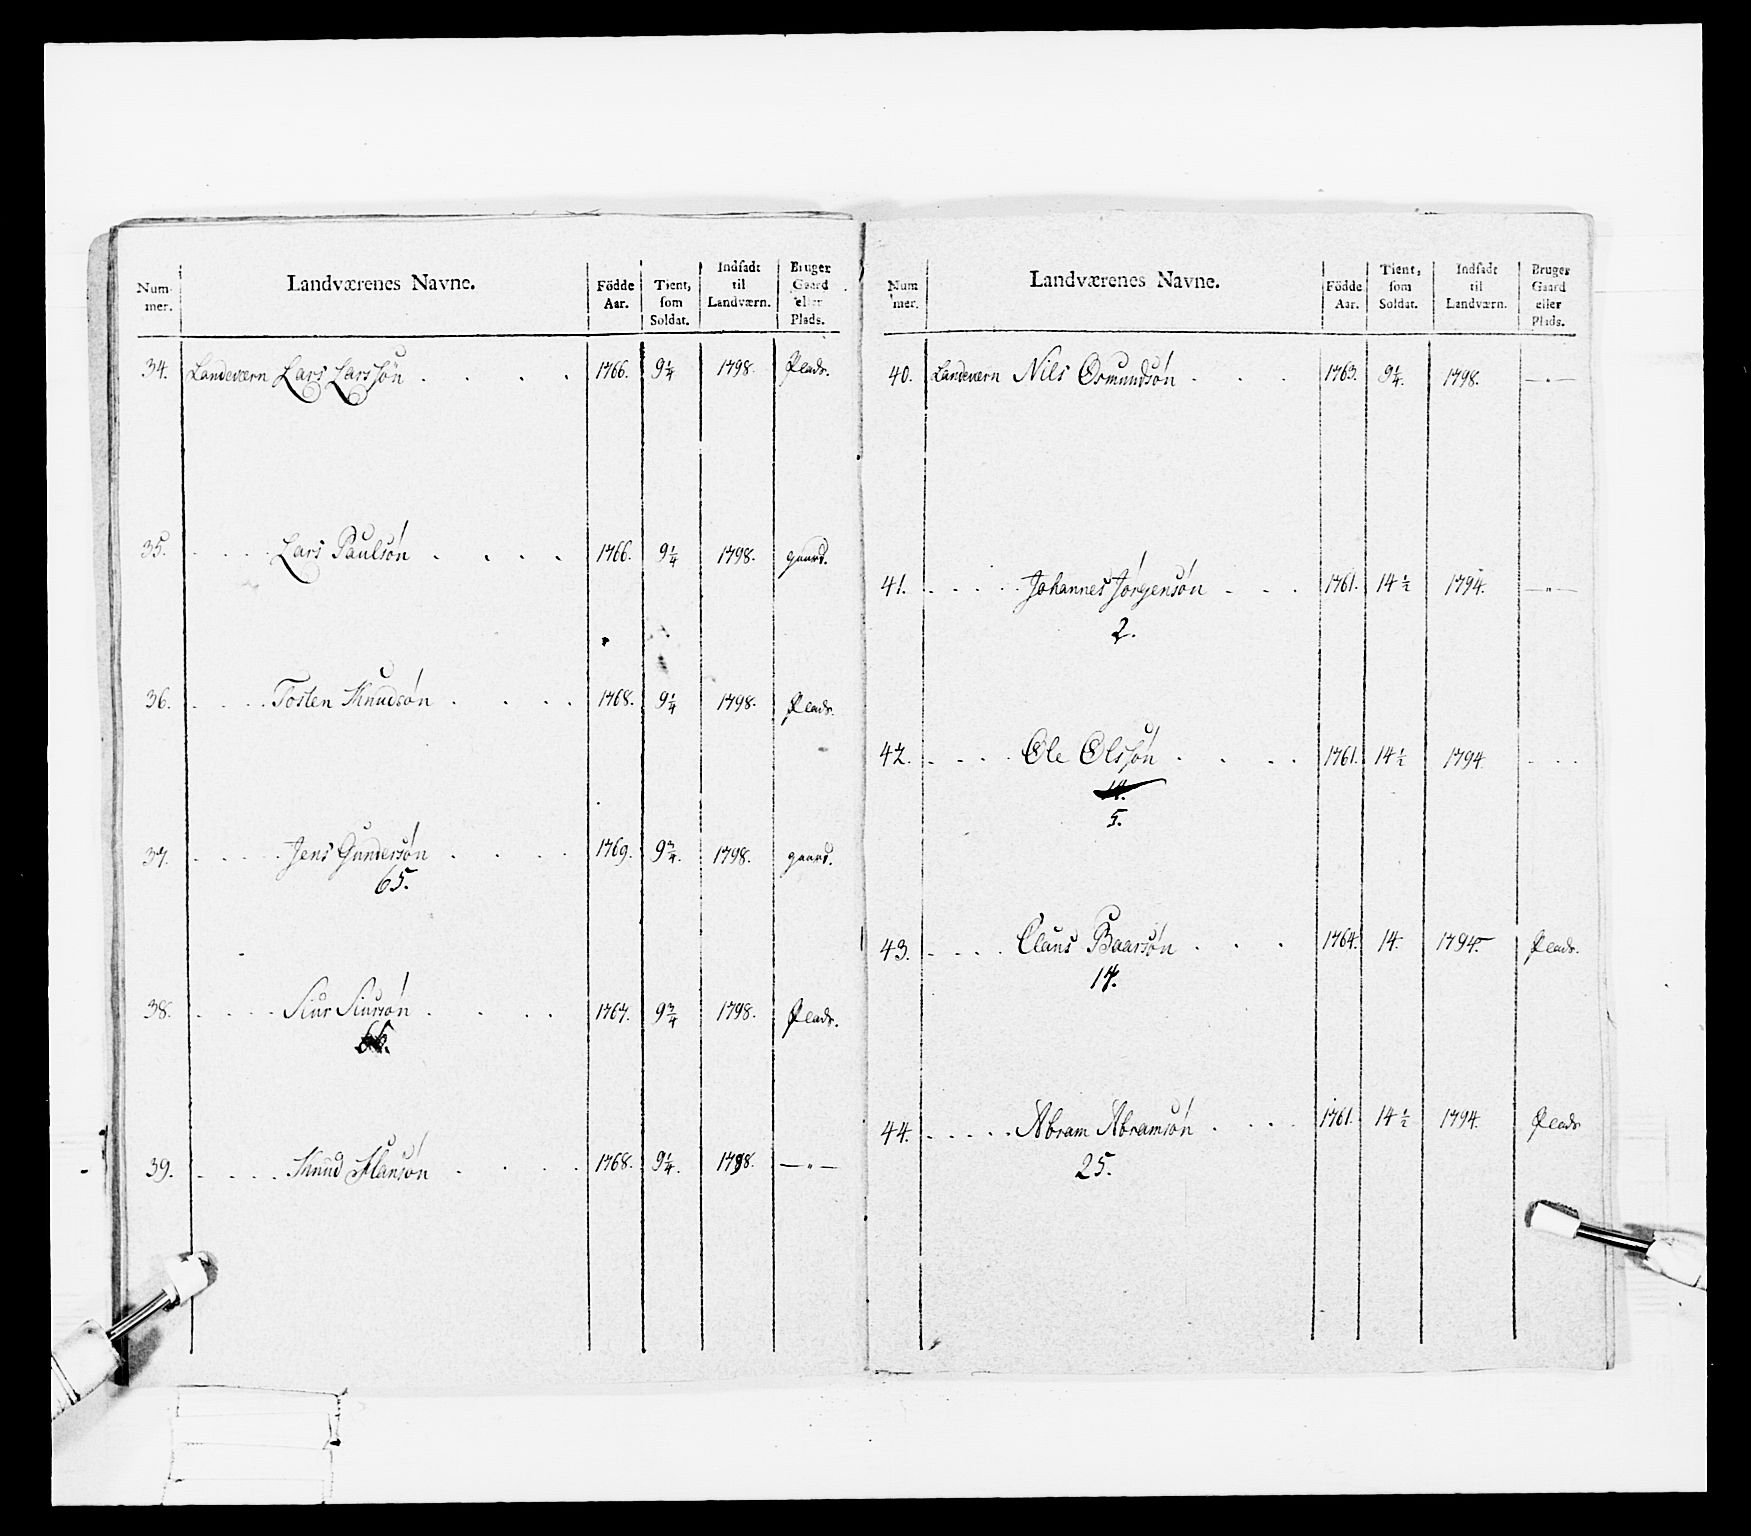 Num-mer. Landværenes Navne. Födde Aar. Tient, som Soldat. Indsadt til Landværn. Bruger Gaard eller Plads.
34. Landeværn Lars Larssøn . . . . 1766. 9¼ 1798. Plads.
35. . . . . Lars Paulsøn . . . . 1766. 9¼ 1798. gaard.
36. . . . . Tosten Knudsøn . . . 1768. 9¼ 1798. Plads.
37. . . . . Jens Gundersøn . . . . 1769. 9¾. 1798. gaard.
65.
38. . . . . Siur Siursøn . . . . 1767. 9¾ 1798. Plads.
39. . . . . Knud Hansøn . . . . 1768. 9¼. 1798. —"—
Num mer. Landværenes Navne. Födde Aar. Tient, som Soldat. Indsadt til Landværn. Bruger Gaard eller Plads.
40. Landeværn Nils Osmundsøn . . . 1763. 9¼. 1798. —"—
41. . . . . . Johannes Jørgensøn . . . 1761. 14½ 1794. —"—
2.
42. . . . . Ole Olssøn . . . . 1761. 14½ 1794 . . .
5.
43. . . . . Claus Baarsøn . . . 1764. 14. 1794. Plads.
17.
44. . . . . . Abram Abramsøn . . . . 1761. 14½ 1794. Plads
25.